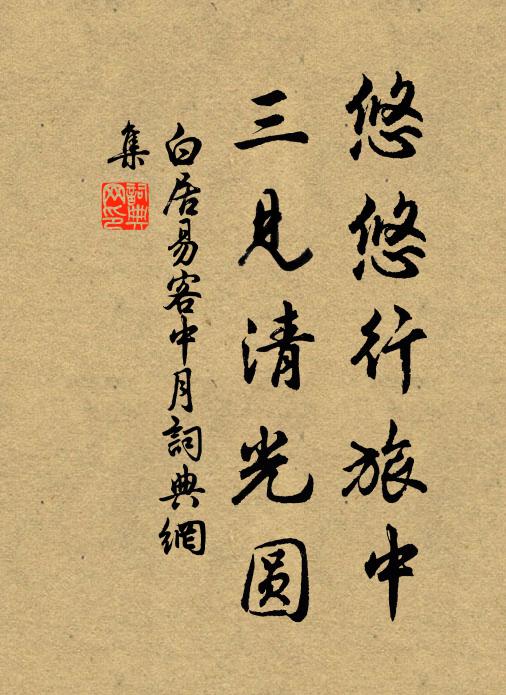 悠悠行旅中
三見清光圆
白居易客中月詞典網
集
詞典
网印